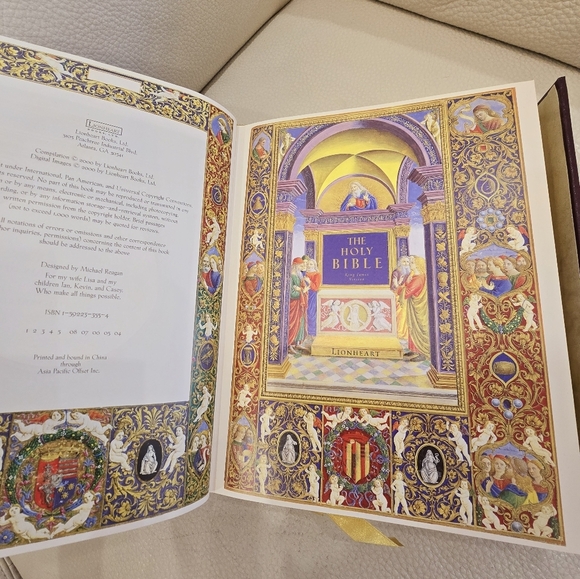 LIONHEART
Lionheart Books, Ltd.
5105 Peachtree Industrial Blvd.
Atlanta, GA 30341
Compilation © 2000 by Lionheart Books, Ltd.
Digital Images © 2000 by Lionheart Books, Ltd.
under International, Pan American, and Universal Copyright Conventions.
reserved. No part of this book may be reproduced or transmitted in any
or by any means, electronic or mechanical, includes photocopying,
or by any information storage-and-retrieval system, without
written permission from the copyright holder. Brief passages
(not to exceed 1,000 words) may be quoted for reviews.
notations of errors or omissions and other correspondence
inquiries, permissions) concerning the content of this book
should be addressed to the above.
Designed by Michael Reagan
For my wife Lisa and my
children Ian, Kevin, and Casey.
Who make all things possible.
1 2 3 4 5 08 07 06 05 04
Printed and bound in China
through
Asia Pacific Offset Inc.
THE
HOLY
BIBLE
King James
Version
LIONHEART